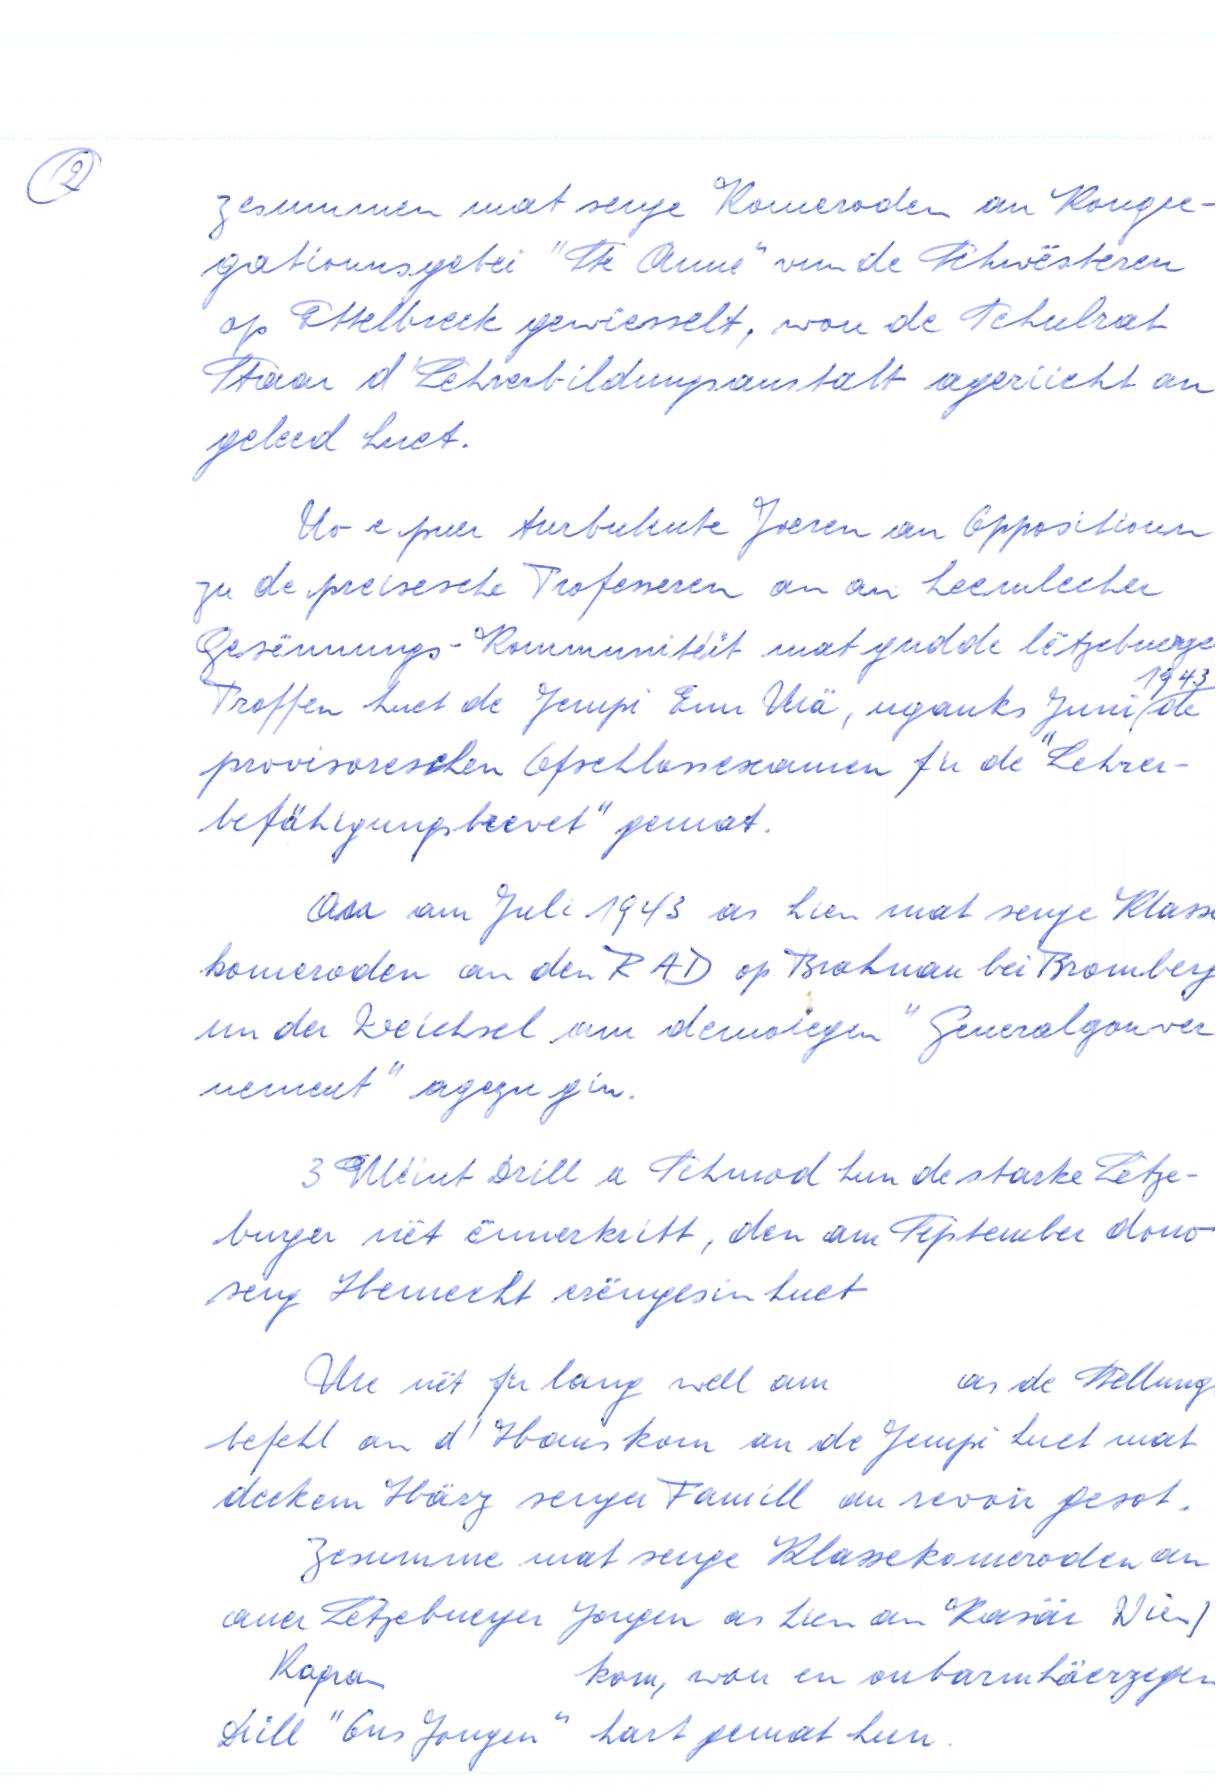 2
zesummen mat senge Komeroden an Kongre-
gatiounsgebei "Ste Anne" vun de Schwësteren
op Ettelbreck gewiesselt, wou de Schulrat
Staar d'Lehrerbildungsanstalt ageriicht an
geleed huet.
No e puer turbulente Joeren an Oppositioun
zu de preisesche Professeren an an heemlecher
Gesënnungs-Kommunitéit mat gudde lëtzebuerge
Proffen huet de Jempi Enn Mä, ugangs Juni 1943 de
provisoreschen Ofschlossexamen fir de "Lehrer-
befähigungsbreevet" gemat.
Am Juli 1943 as hien mat senge Klasse
komeroden an den RAD op Brahnau bei Bromberg
un der Weichsel am demolegen "Generalgouver
nement" agezu gin.
3 Méint Drill a Schmod hun de starke Lëtze-
burger nët ënnerkritt, den am September dono
seng Heemecht erëmgesin huet
Mee nët fir lang well am as de Stellungs
befehl an d'Haus kom an de Jempi huet mat
deckem Häerz senger Famill au revoir gesot.
Zesumme mat senge Klassekomeroden an
aner Lëtzebuerger Jongen as hien an Kasär Wien/
Kagran kom, wou en onbarmhäerzegen
Drill "Ons Jongen" hart gemat hun.